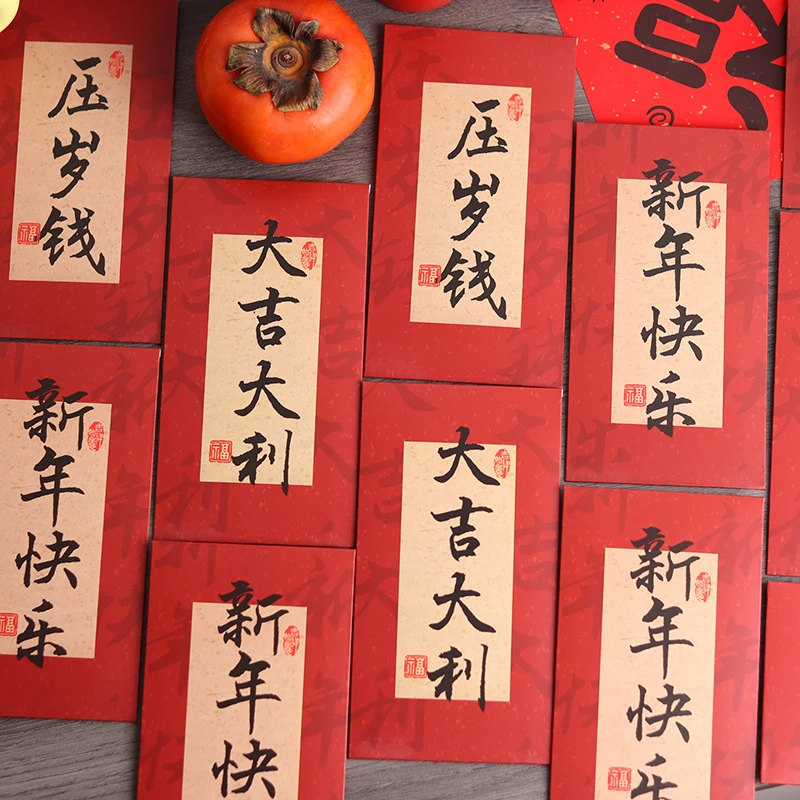 压岁钱
压岁钱
新年快乐
大吉大利
新年快乐
大吉大利
新年快乐
新年快乐
福
福
福
福
福
福
福